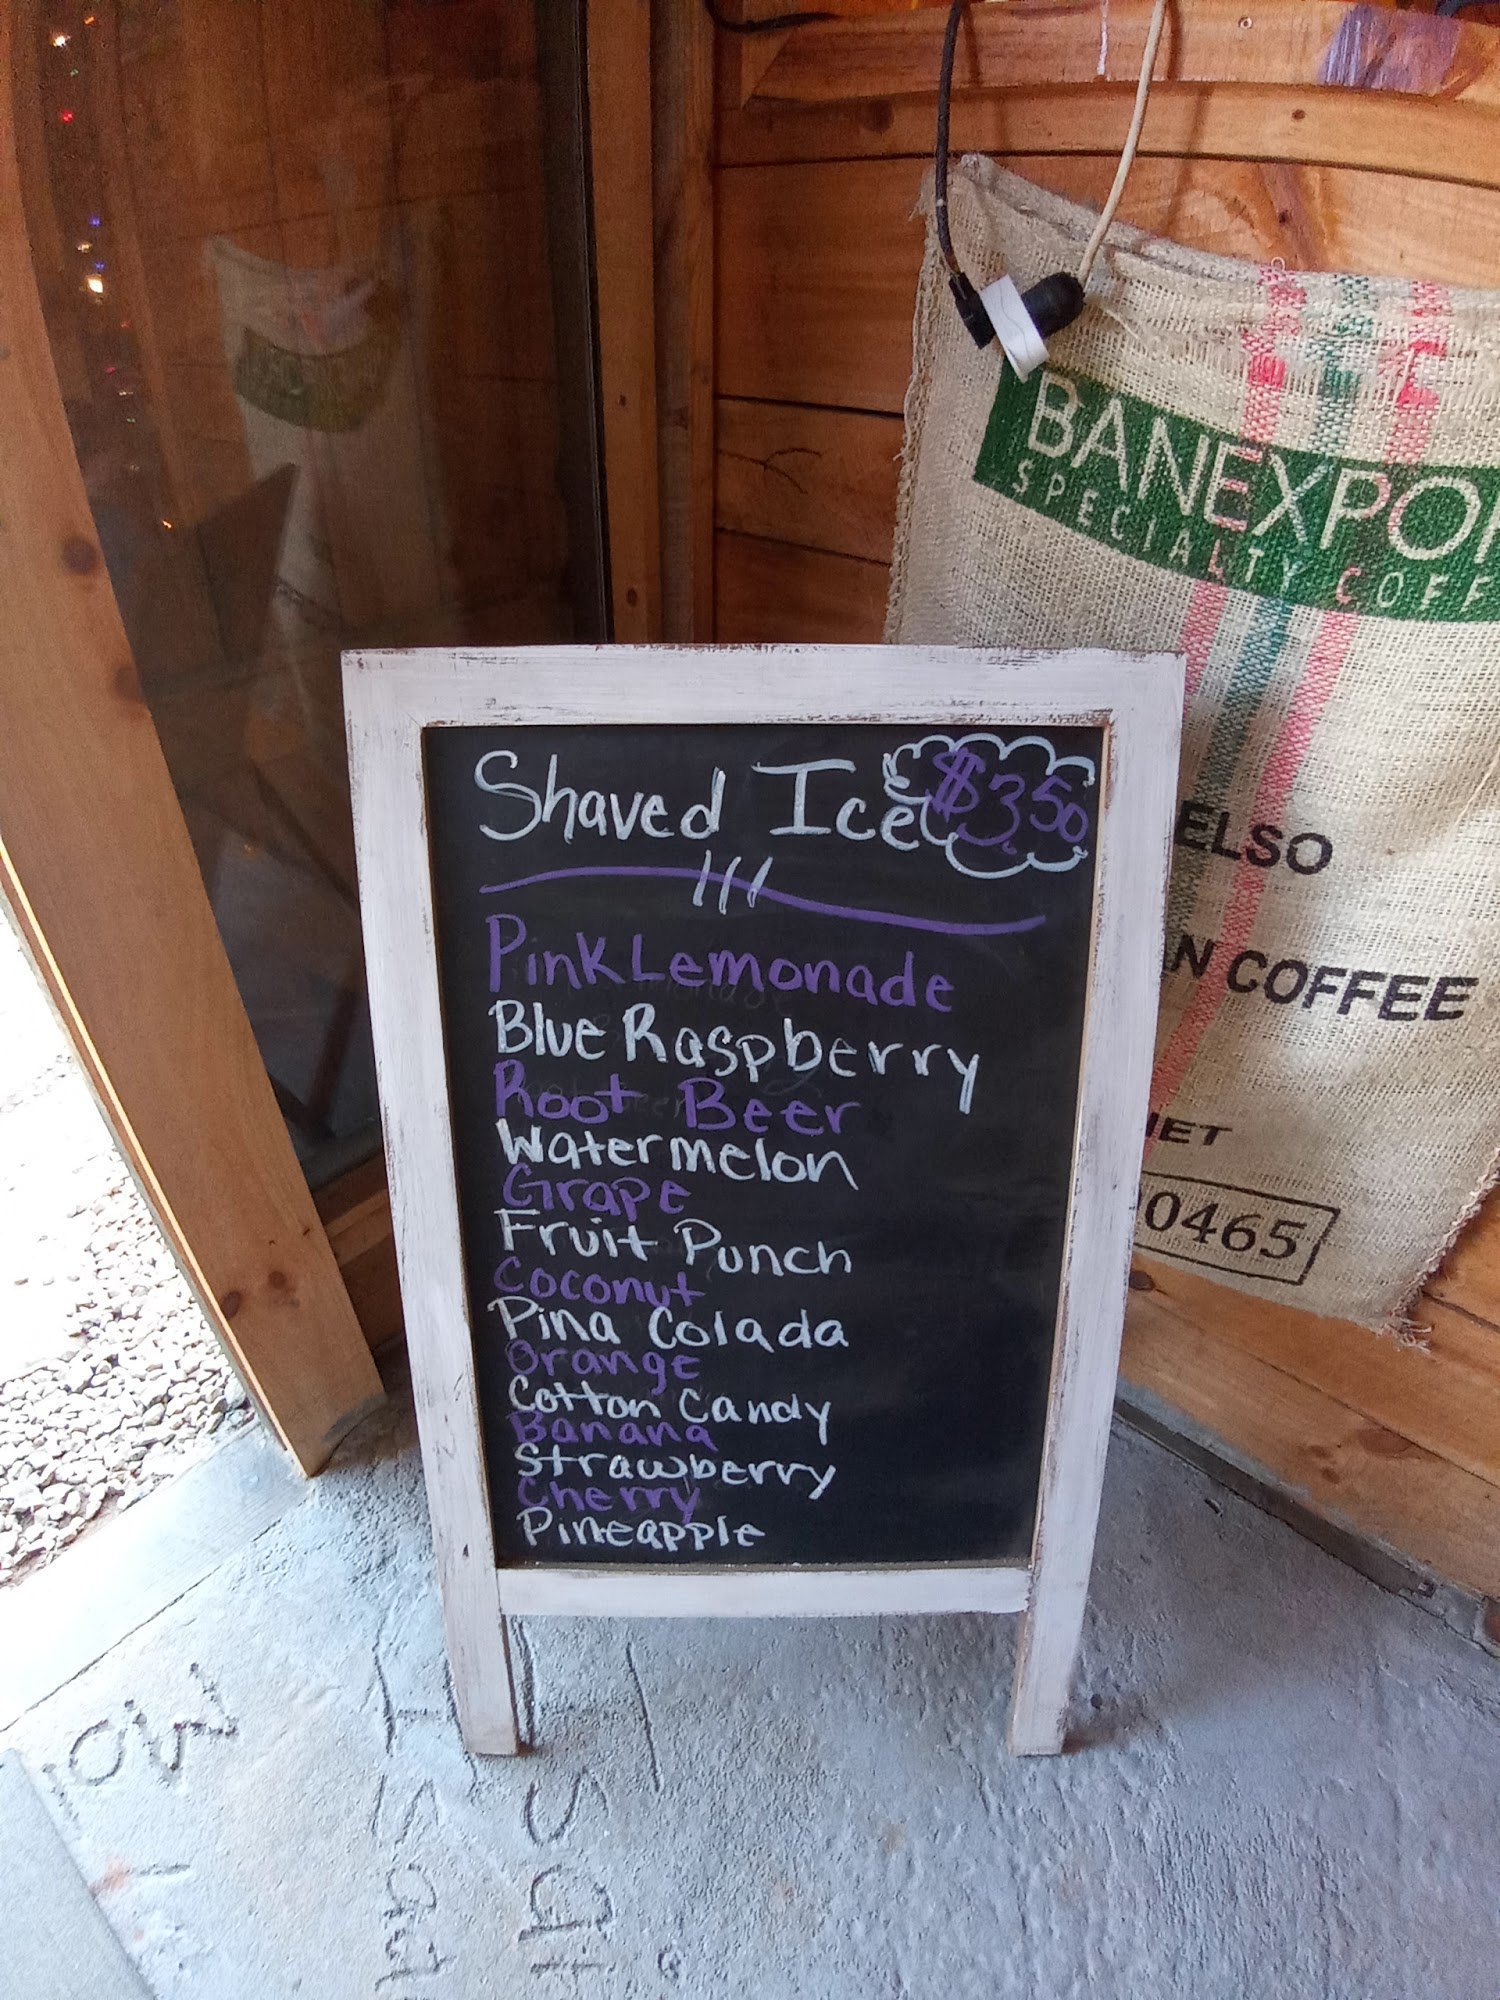 BANEXPO
SPECIALTY COFF
ELSO
N COFFEE
NET
0465
Shaved Ice $3.50
Pink Lemonade
Blue Raspberry
Root Beer
Watermelon
Grape
Fruit Punch
Coconut
Pina Colada
Orange
Cotton Candy
Banana
Strawberry
Cherry
Pineapple